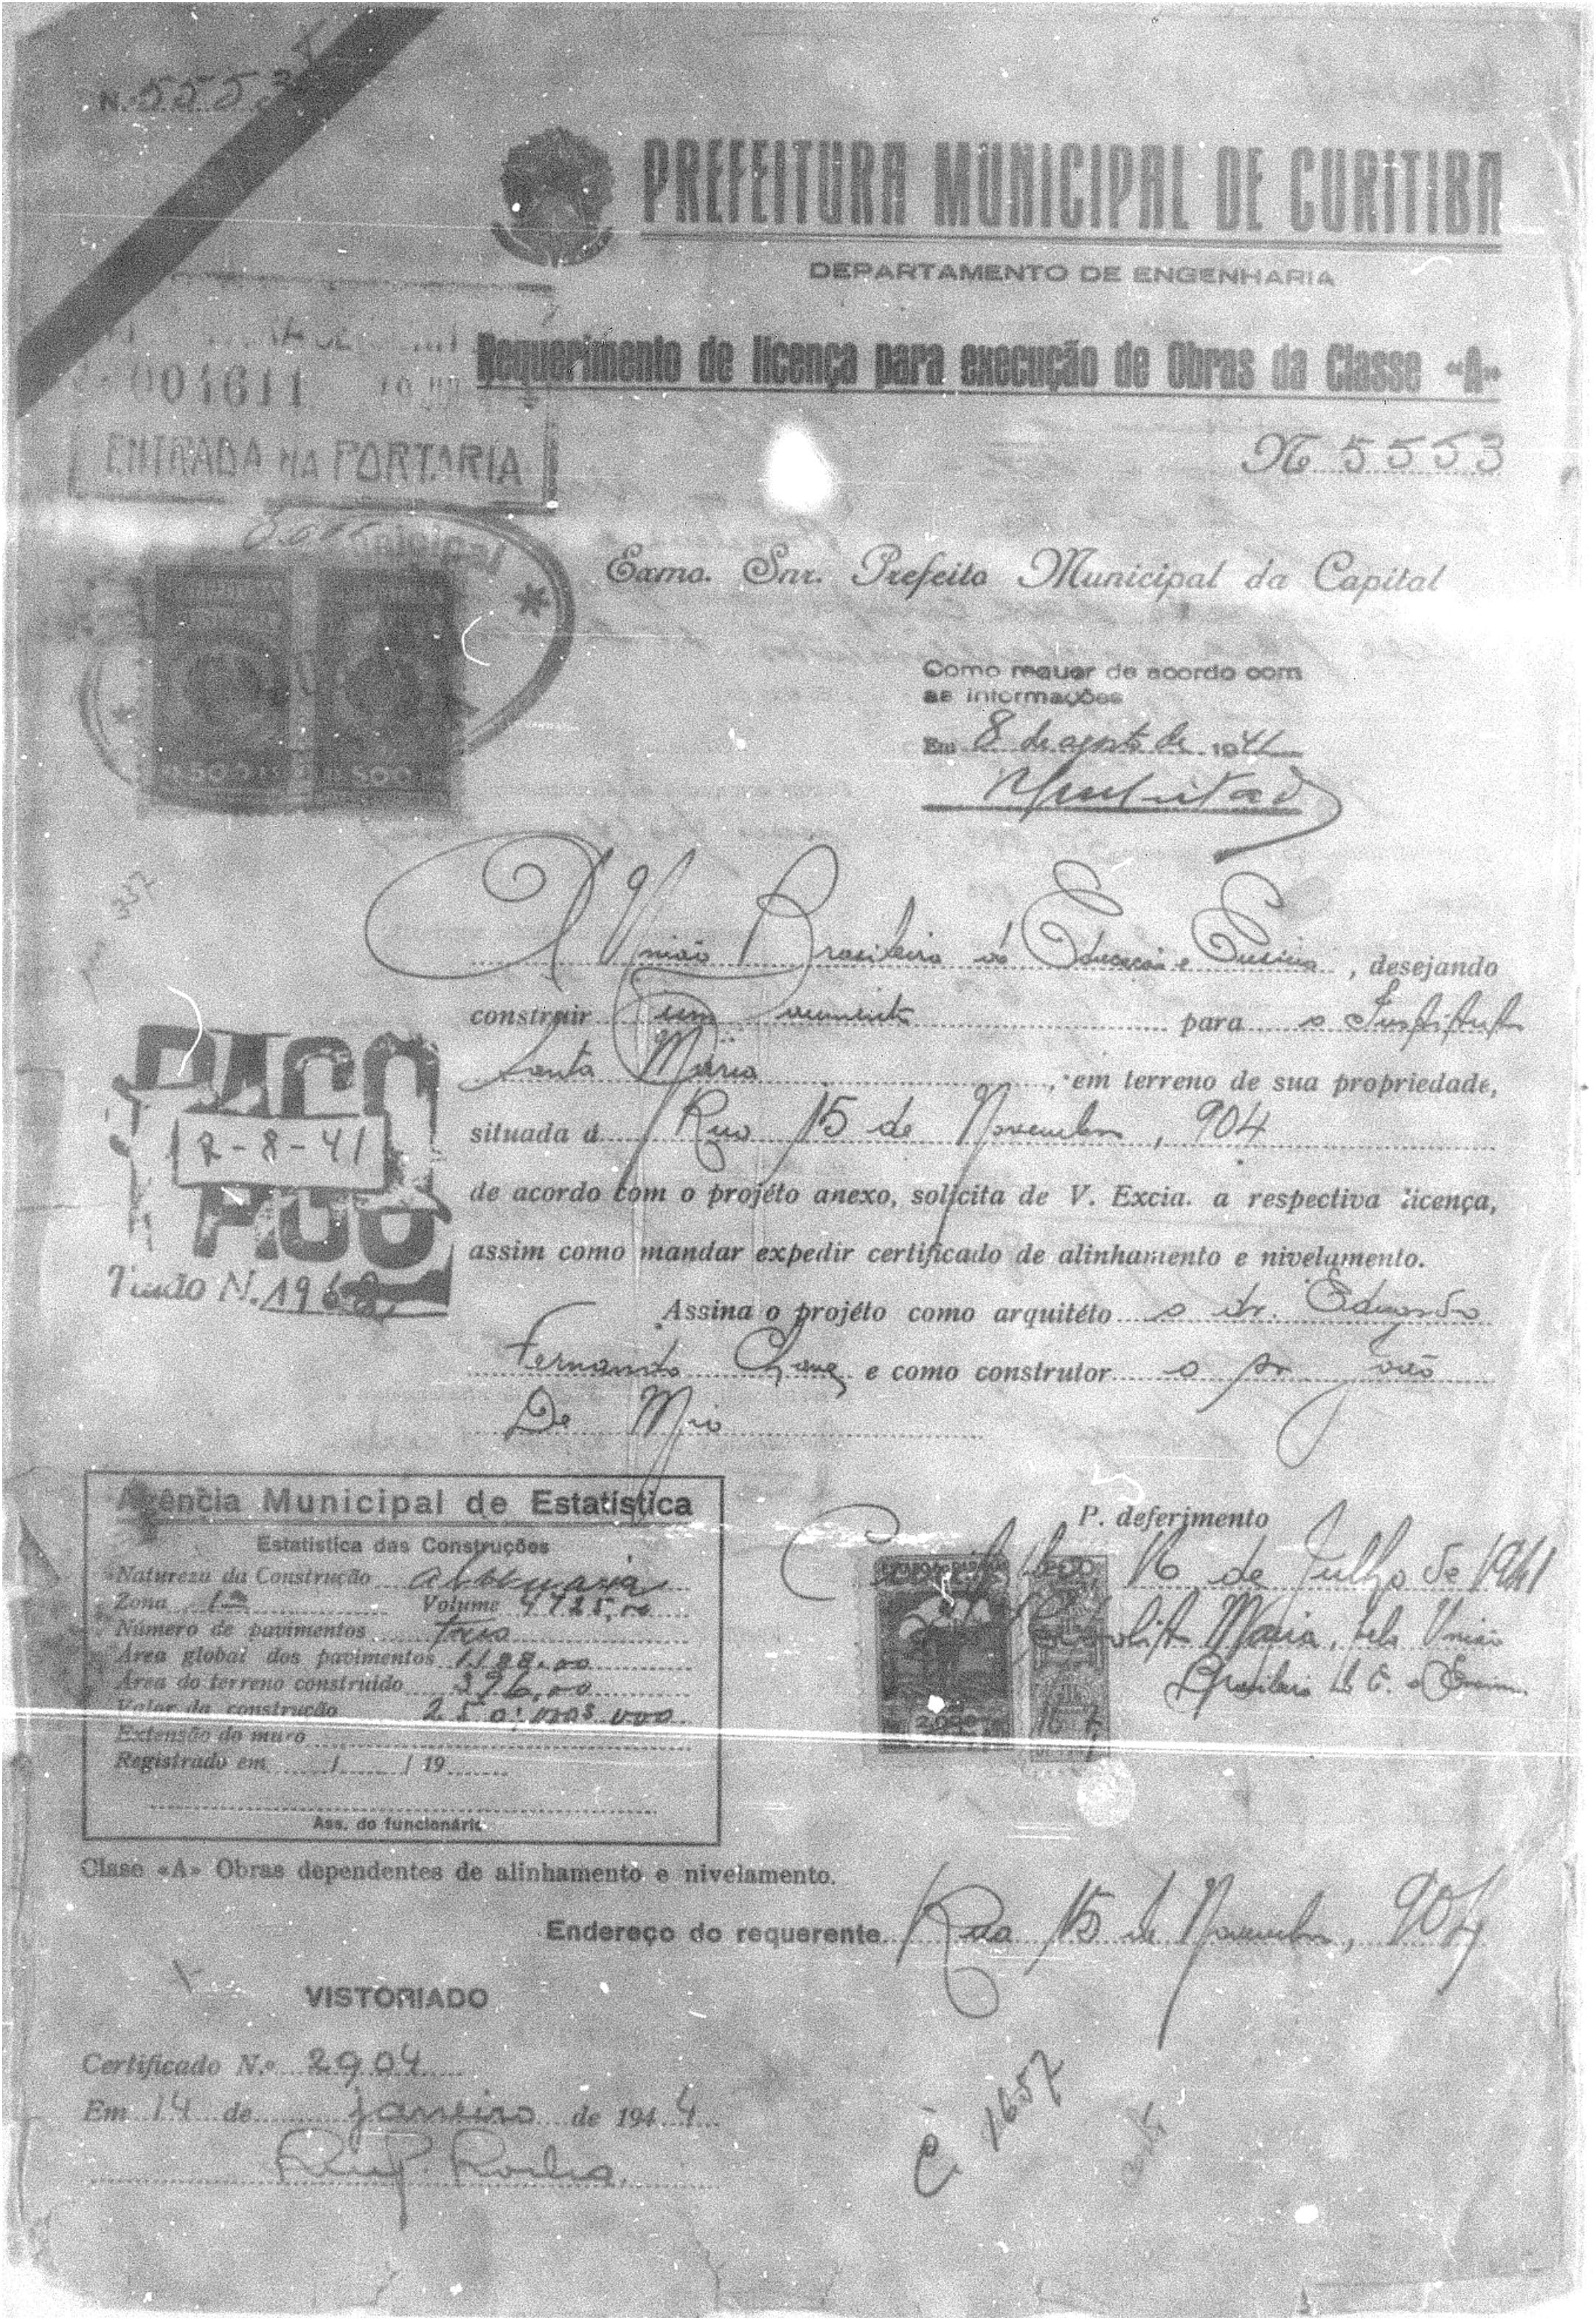 N. 5553
PREFEITURA MUNICIPAL DE CURITIBA
DEPARTAMENTO DE ENGENHARIA
Requerimento de licença para execução de Obras da Classe «A»
004611
ENTRADA NA PORTARIA
Nº 5553
Exmo. Snr. Prefeito Municipal da Capital
Como requer de acordo com
as informações
Em 8 de agosto de 1941
A União Brasileira de Educação e Ensino, desejando
construir um aumento para o Instituto
Santa Maria, em terreno de sua propriedade,
situada á Rua 15 de Novembro, 904
de acordo com o projéto anexo, solicita de V. Excia. a respectiva licença,
assim como mandar expedir certificado de alinhamento e nivelamento.
PAGO
12-8-41
Talão N. 1968
Assina o projéto como arquitéto o dr. Eduardo
Fernando Chaves e como construtor o sr. João
De Mio
P. deferimento
16 de Julho de 1941
Maria, pela União
Brasileira de E. e Ensino
Agência Municipal de Estatística
Estatistica das Construções
Natureza da Construção alvenaria
Zona 1ª Volume 4725,00
Número de pavimentos tres
Área global dos pavimentos 1.188,00
Área do terreno construido 396,00
Valor da construção 250:000$000
Extensão do muro
Registrado em / / 19
Ass. do funcionário
Clase «A» Obras dependentes de alinhamento e nivelamento.
Endereço do requerente Rua 15 de Novembro, 904
VISTORIADO
Certificado N.º 2904
Em 14 de janeiro de 1944
1657